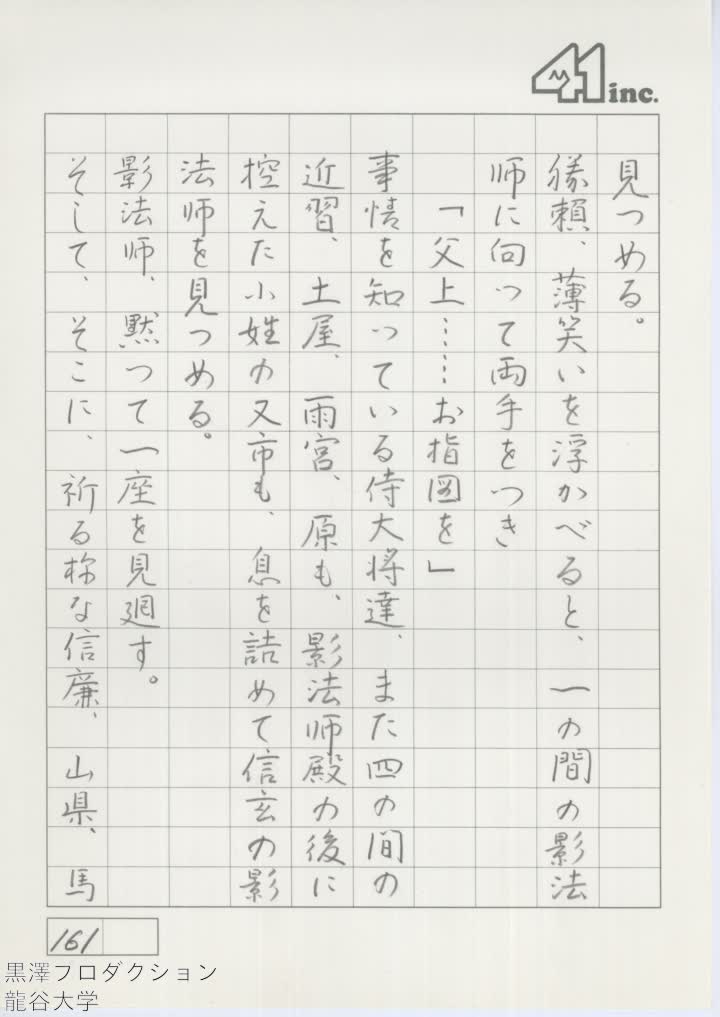 41 inc.
見つめる。
勝頼、薄笑いを浮かべると、一の間の影法
師に向って両手をつき
「父上……お指図を」
事情を知っている侍大将達、また四の間の
近習、土屋、雨宮、原も、影法師殿の後に
控えた小姓の又市も、息を詰めて信玄の影
法師を見つめる。
影法師、黙って一座を見廻す。
そして、そこに、祈る様な信廉、山県、馬
161
黒澤プロダクション
龍谷大学